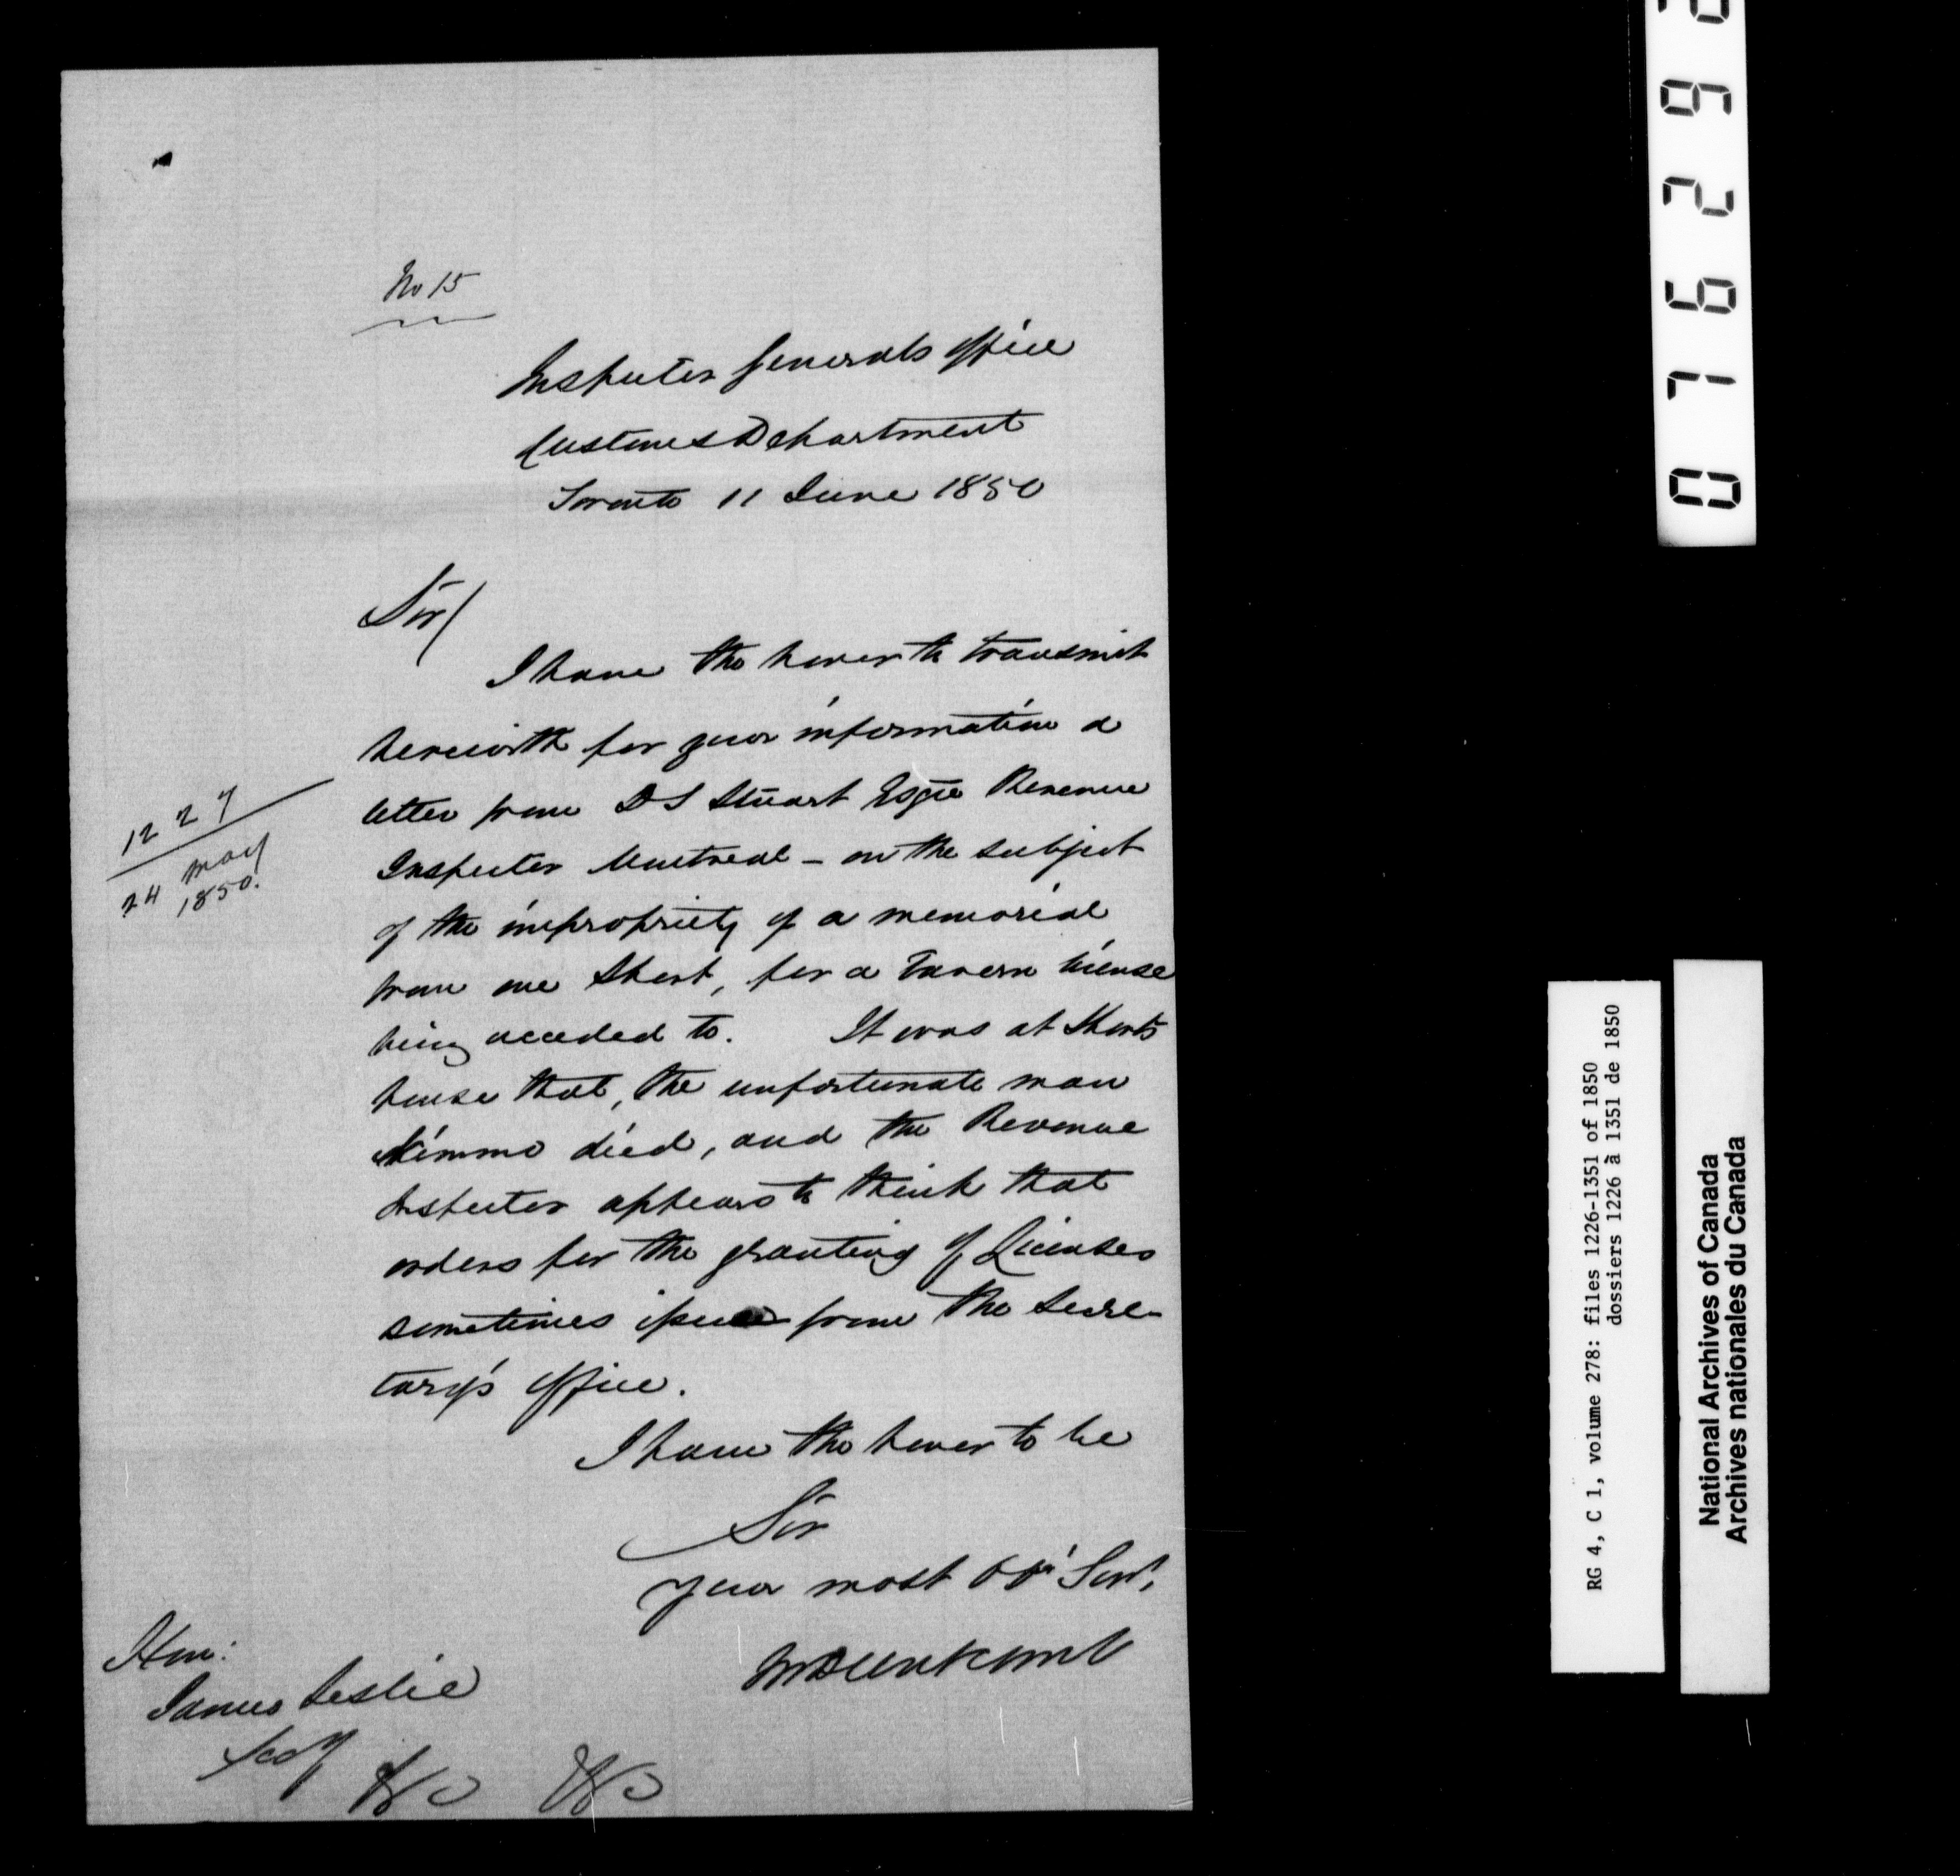 No 15
Inspector Generals Office
Customs Department
Toronto 11 June 1850
Sir/
I have the honor to transmit
herewith for your information a
letter from D S Stuart Esqre Revenue
Inspector Montreal - on the subject
of the impropriety of a memorial
from one Short, for a Tavern license
being acceded to. It was at Shorts
house that, the unfortunate man
Nimmo died, and the Revenue
Inspector appears to think that
orders for the granting of Licenses
sometimes issue from the Secre-
tary's office.
I have the honor to be
Sir
your most Obt Servt
Hon:
James Leslie
Secy
&c &c
1227
24 May
1850.
076292
RG 4, C 1, volume 278: files 1226-1351 of 1850
dossiers 1226 à 1351 de 1850
National Archives of Canada
Archives nationales du Canada